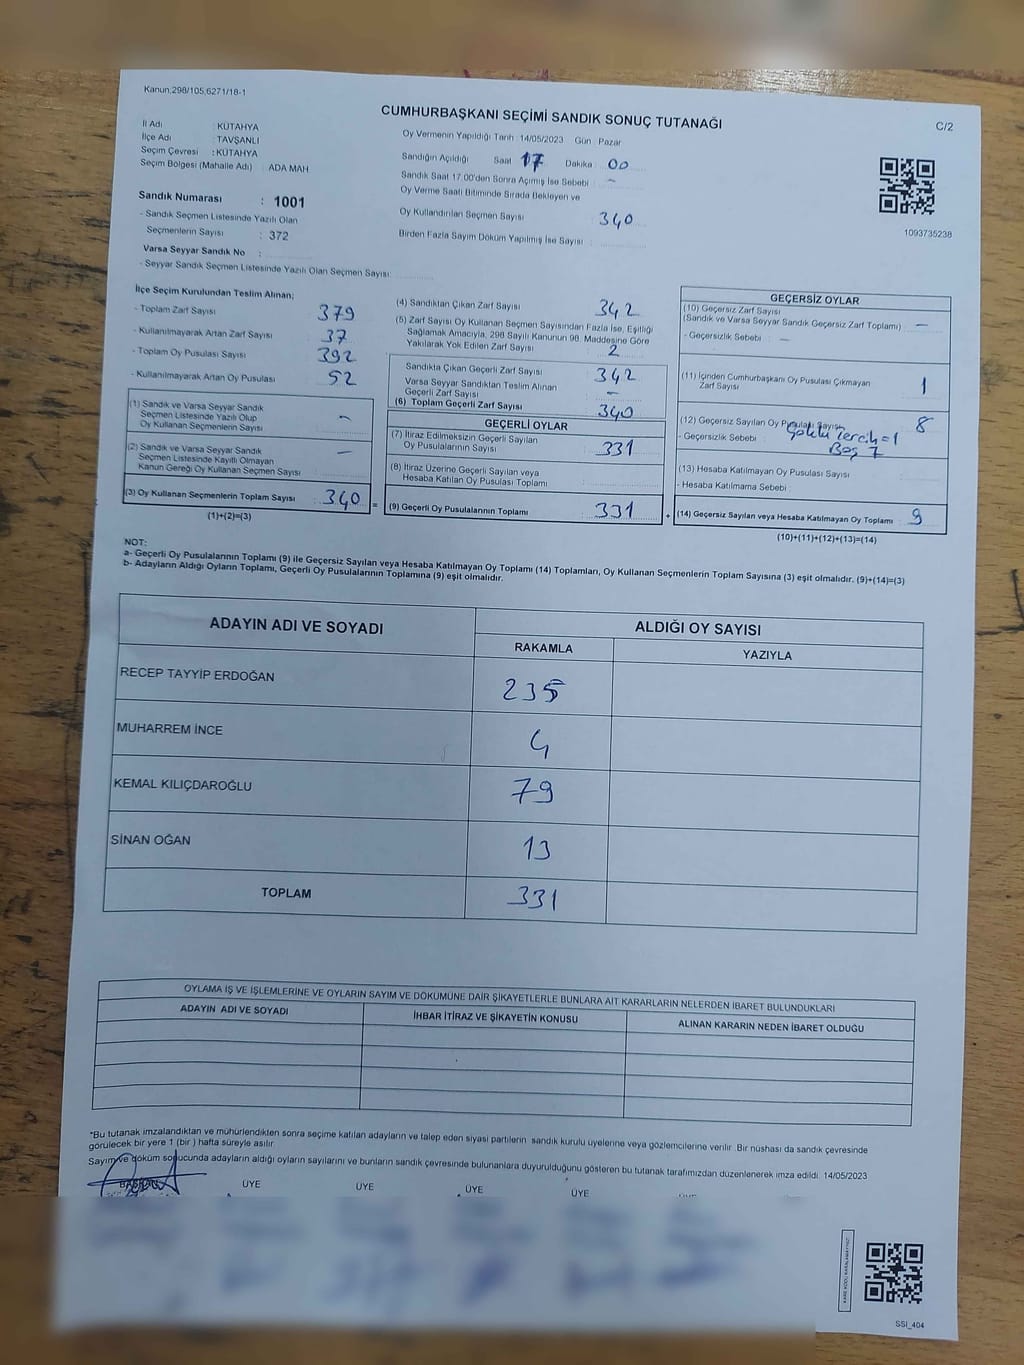 Kanun,298/105,6271/18-1
CUMHURBAŞKANI SEÇİMİ SANDIK SONUÇ TUTANAĞI
C/2
İl Adı : KÜTAHYA
İlçe Adı : TAVŞANLI
Seçim Çevresi : KÜTAHYA
Seçim Bölgesi (Mahalle Adı) : ADA MAH
Oy Vermenin Yapıldığı Tarih :14/05/2023 Gün : Pazar
Sandığın Açıldığı Saat : 17 Dakika : 00
Sandık Saat 17.00'den Sonra Açımış İse Sebebi : -
Oy Verme Saati Bitiminde Sırada Bekleyen ve
Oy Kullandırılan Seçmen Sayısı : 340
Birden Fazla Sayım Döküm Yapılmış İse Sayısı :
1093735238
Sandık Numarası : 1001
- Sandık Seçmen Listesinde Yazılı Olan
Seçmenlerin Sayısı : 372
Varsa Seyyar Sandık No :
- Seyyar Sandık Seçmen Listesinde Yazılı Olan Seçmen Sayısı:
İlçe Seçim Kurulundan Teslim Alınan;
- Toplam Zarf Sayısı : 379
- Kullanılmayarak Artan Zarf Sayısı : 37
- Toplam Oy Pusulası Sayısı : 392
- Kullanılmayarak Artan Oy Pusulası : 52
(1) Sandık ve Varsa Seyyar Sandık
Seçmen Listesinde Yazılı Olup
Oy Kullanan Seçmenlerin Sayısı : -
(2) Sandık ve Varsa Seyyar Sandık
Seçmen Listesinde Kayıtlı Olmayan
Kanun Gereği Oy Kullanan Seçmen Sayısı : -
(3) Oy Kullanan Seçmenlerin Toplam Sayısı : 340 =
(1)+(2)=(3)
(4) Sandıktan Çıkan Zarf Sayısı : 342
(5) Zarf Sayısı Oy Kullanan Seçmen Sayısından Fazla İse, Eşitliği
Sağlamak Amacıyla, 298 Sayılı Kanunun 98. Maddesine Göre
Yakılarak Yok Edilen Zarf Sayısı : 2
Sandıkta Çıkan Geçerli Zarf Sayısı : 342
Varsa Seyyar Sandıktan Teslim Alınan
Geçerli Zarf Sayısı : -
(6) Toplam Geçerli Zarf Sayısı : 340
GEÇERLİ OYLAR
(7) İtiraz Edilmeksizin Geçerli Sayılan
Oy Pusulalarının Sayısı : 331
(8) İtiraz Üzerine Geçerli Sayılan veya
Hesaba Katılan Oy Pusulası Toplamı :
(9) Geçerli Oy Pusulalarının Toplamı : 331 +
GEÇERSİZ OYLAR
(10) Geçersiz Zarf Sayısı
(Sandık ve Varsa Seyyar Sandık Geçersiz Zarf Toplamı) : -
- Geçersizlik Sebebi : -
(11) İçinden Cumhurbaşkanı Oy Pusulası Çıkmayan
Zarf Sayısı : 1
(12) Geçersiz Sayılan Oy Pusulası Sayısı : 8
- Geçersizlik Sebebi : Çoklu Tercih=1
Boş 7
(13) Hesaba Katılmayan Oy Pusulası Sayısı :
- Hesaba Katılmama Sebebi :
(14) Geçersiz Sayılan veya Hesaba Katılmayan Oy Toplamı : 9
(10)+(11)+(12)+(13)=(14)
NOT:
a- Geçerli Oy Pusulalarının Toplamı (9) ile Geçersiz Sayılan veya Hesaba Katılmayan Oy Toplamı (14) Toplamları, Oy Kullanan Seçmenlerin Toplam Sayısına (3) eşit olmalıdır. (9)+(14)=(3)
b- Adayların Aldığı Oyların Toplamı, Geçerli Oy Pusulalarının Toplamına (9) eşit olmalıdır.
ADAYIN ADI VE SOYADI
ALDIĞI OY SAYISI
RAKAMLA YAZIYLA
RECEP TAYYİP ERDOĞAN 235
MUHARREM İNCE 4
KEMAL KILIÇDAROĞLU 79
SİNAN OĞAN 13
TOPLAM 331
OYLAMA İŞ VE İŞLEMLERİNE VE OYLARIN SAYIM VE DÖKÜMÜNE DAİR ŞİKAYETLERLE BUNLARA AİT KARARLARIN NELERDEN İBARET BULUNDUKLARI
ADAYIN ADI VE SOYADI İHBAR İTİRAZ VE ŞİKAYETİN KONUSU ALINAN KARARIN NEDEN İBARET OLDUĞU
*Bu tutanak imzalandıktan ve mühürlendikten sonra seçime katılan adayların ve talep eden siyasi partilerin sandık kurulu üyelerine veya gözlemcilerine verilir. Bir nüshası da sandık çevresinde
görülecek bir yere 1 (bir ) hafta süreyle asılır.
Sayım ve döküm sonucunda adayların aldığı oyların sayılarını ve bunların sandık çevresinde bulunanlara duyurulduğunu gösteren bu tutanak tarafımızdan düzenlenerek imza edildi. 14/05/2023
BAŞKAN ÜYE ÜYE ÜYE ÜYE
SSI_404